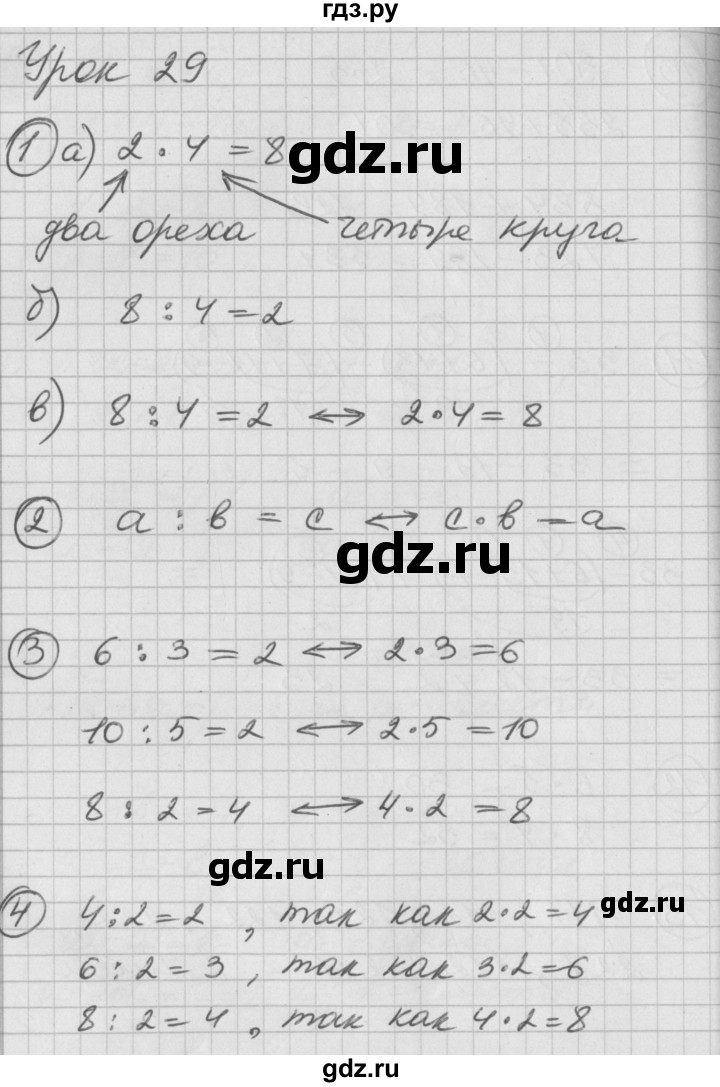 гдз.ру
Урок 29
① а) 2 · 4 = 8
gdz.ru
два ореха четыре круга
б) 8 : 4 = 2
в) 8 : 4 = 2 ↔ 2 · 4 = 8
② а : в = с ↔ с · в = а
gdz.ru
③ 6 : 3 = 2 ↔ 2 · 3 = 6
10 : 5 = 2 ↔ 2 · 5 = 10
8 : 2 = 4 ↔ 4 · 2 = 8
gdz.ru
④ 4 : 2 = 2 , так как 2 · 2 = 4
gdz.ru
6 : 2 = 3 , так как 3 · 2 = 6
8 : 2 = 4 , так как 4 · 2 = 8
gdz.ru